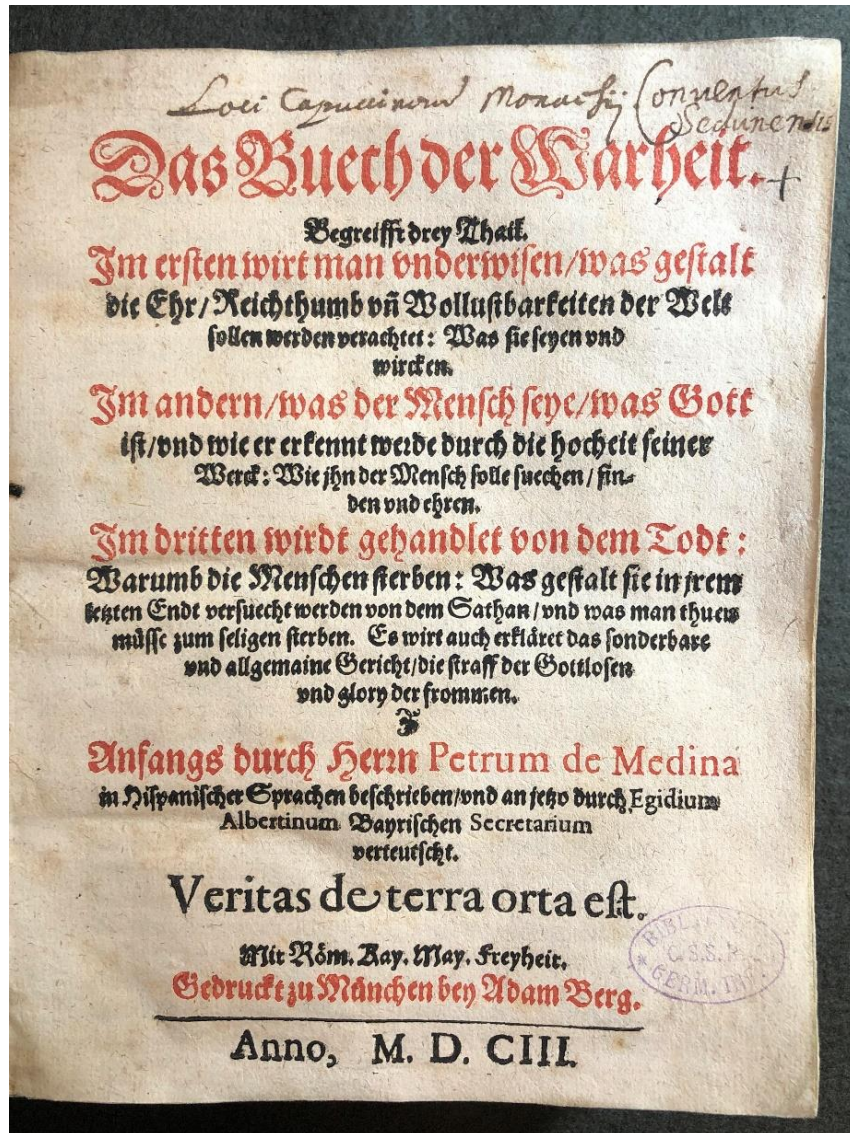 Loci Capucinorum Monachij Conventus
Sedunensis
Das Buech der Warheit.
Begreifft drey Thail.
Im ersten wirt man vnderwisen/was gestalt
die Ehr/Reichthumb vñ Wollustbarkeiten der Welt
sollen werden verachtet: Was sie seyen vnd
wircken.
Im andern/was der Mensch seye/was Gott
ist/vnd wie er erkennt werde durch die hocheit seiner
Werck: Wie jhn der Mensch solle suechen/fin-
den vnd ehren.
Im dritten wirdt gehandlet von dem Todt:
Warumb die Menschen sterben: Was gestalt sie in jrem
letzten Endt versuecht werden von dem Sathan/vnd was man thuen
müsse zum seligen sterben. Es wirt auch erkläret das sonderbare
vnd allgemaine Gericht/die straff der Gottlosen
vnd glory der frommen.
Anfangs durch Herrn Petrum de Medina
in Hispanischer Sprachen beschrieben/vnd an jetzo durch Egidium
Albertinum Bayrischen Secretarium
verteutscht.
Veritas de terra orta est.
Mit Röm. Kay. May. Freyheit.
Gedruckt zu München bey Adam Berg.
Anno, M. D. CIII.
C.S.S.R.
GERM. INF.